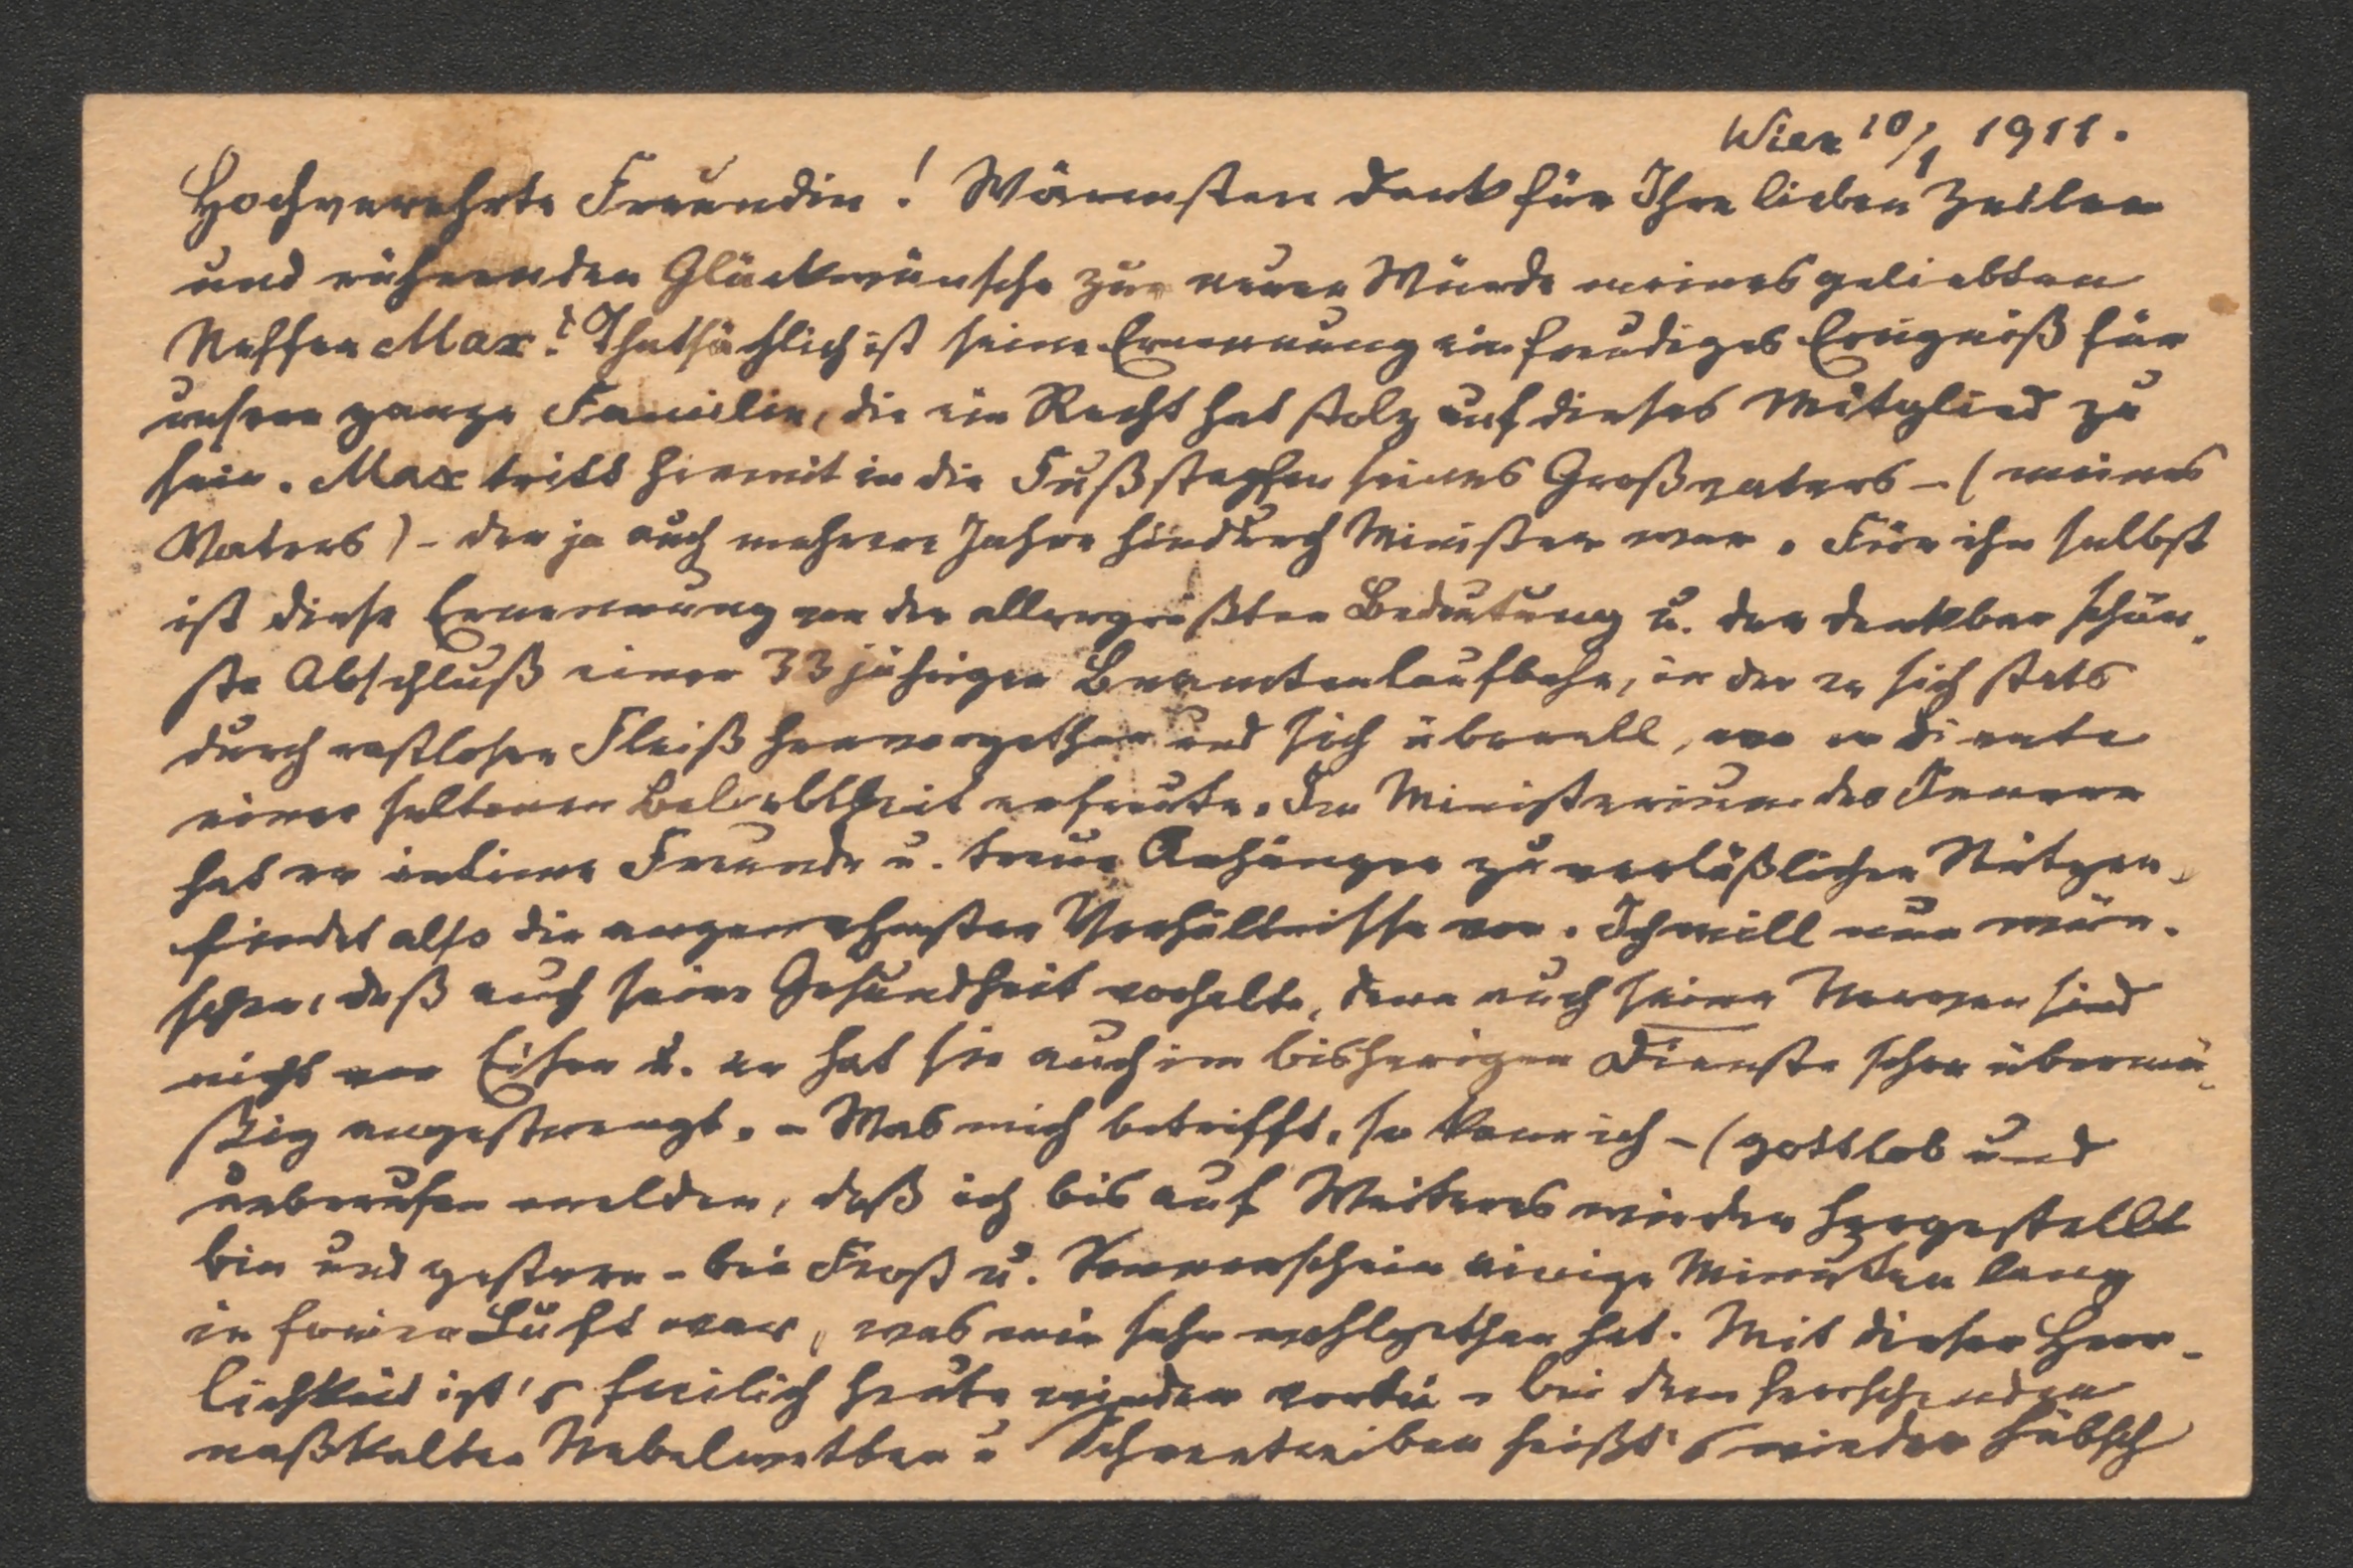 Wien 10/1 1911.
Hochverehrte Freundin! Wärmsten Dank für Ihre lieben Zeilen
und rührenden Glückwünsche zur neuen Würde meines geliebten
Neffen Max! Thatsächlich ist seine Ernennung ein freudiges Ereigniß für
unsere ganze Familie, die ein Recht hat stolz auf dieses Mitglied zu
sein. Max tritt hiermit in die Fußstapfen seines Großvaters – (meines
Vaters) – der ja auch mehrere Jahre hindurch Minister war. Für ihn selbst
ist diese Ernennung von der allergrößten Bedeutung u. der denkbar schön-
ste Abschluß einer 33 jährigen Beamtenlaufbahn, in der er sich stets
durch rastlosen Fleiß hervorgethan und sich überall, wo er diente
einer seltenen Beliebtheit erfreute. Im Ministerium des Innern
hat er intime Freunde u. treue Anhänger zu verläßlichen Stützen,
findet also die angenehmsten Verhältnisse vor. Ich will nun wün-
schen, daß auch seine Gesundheit vorhalte, denn auch seine Nerven sind
nicht von Eisen u. er hat sie auch im bisherigen Dienste schon übermä-
ßig angestrengt. – Was mich betrifft, so kann ich – (gottlob und
unberufen melden, daß ich bis auf Weiteres wieder hergestellt
bin und gestern – bei Frost u. Sonnenschein einige Minuten lang
in freier Luft war, was mir sehr wohlgethan hat. Mit dieser Herr-
lichkeit ist's freilich heute wieder vorbei – bei dem herrschenden
naßkalten Nebelwetter u. Schneetreiben heißt's wieder hübsch